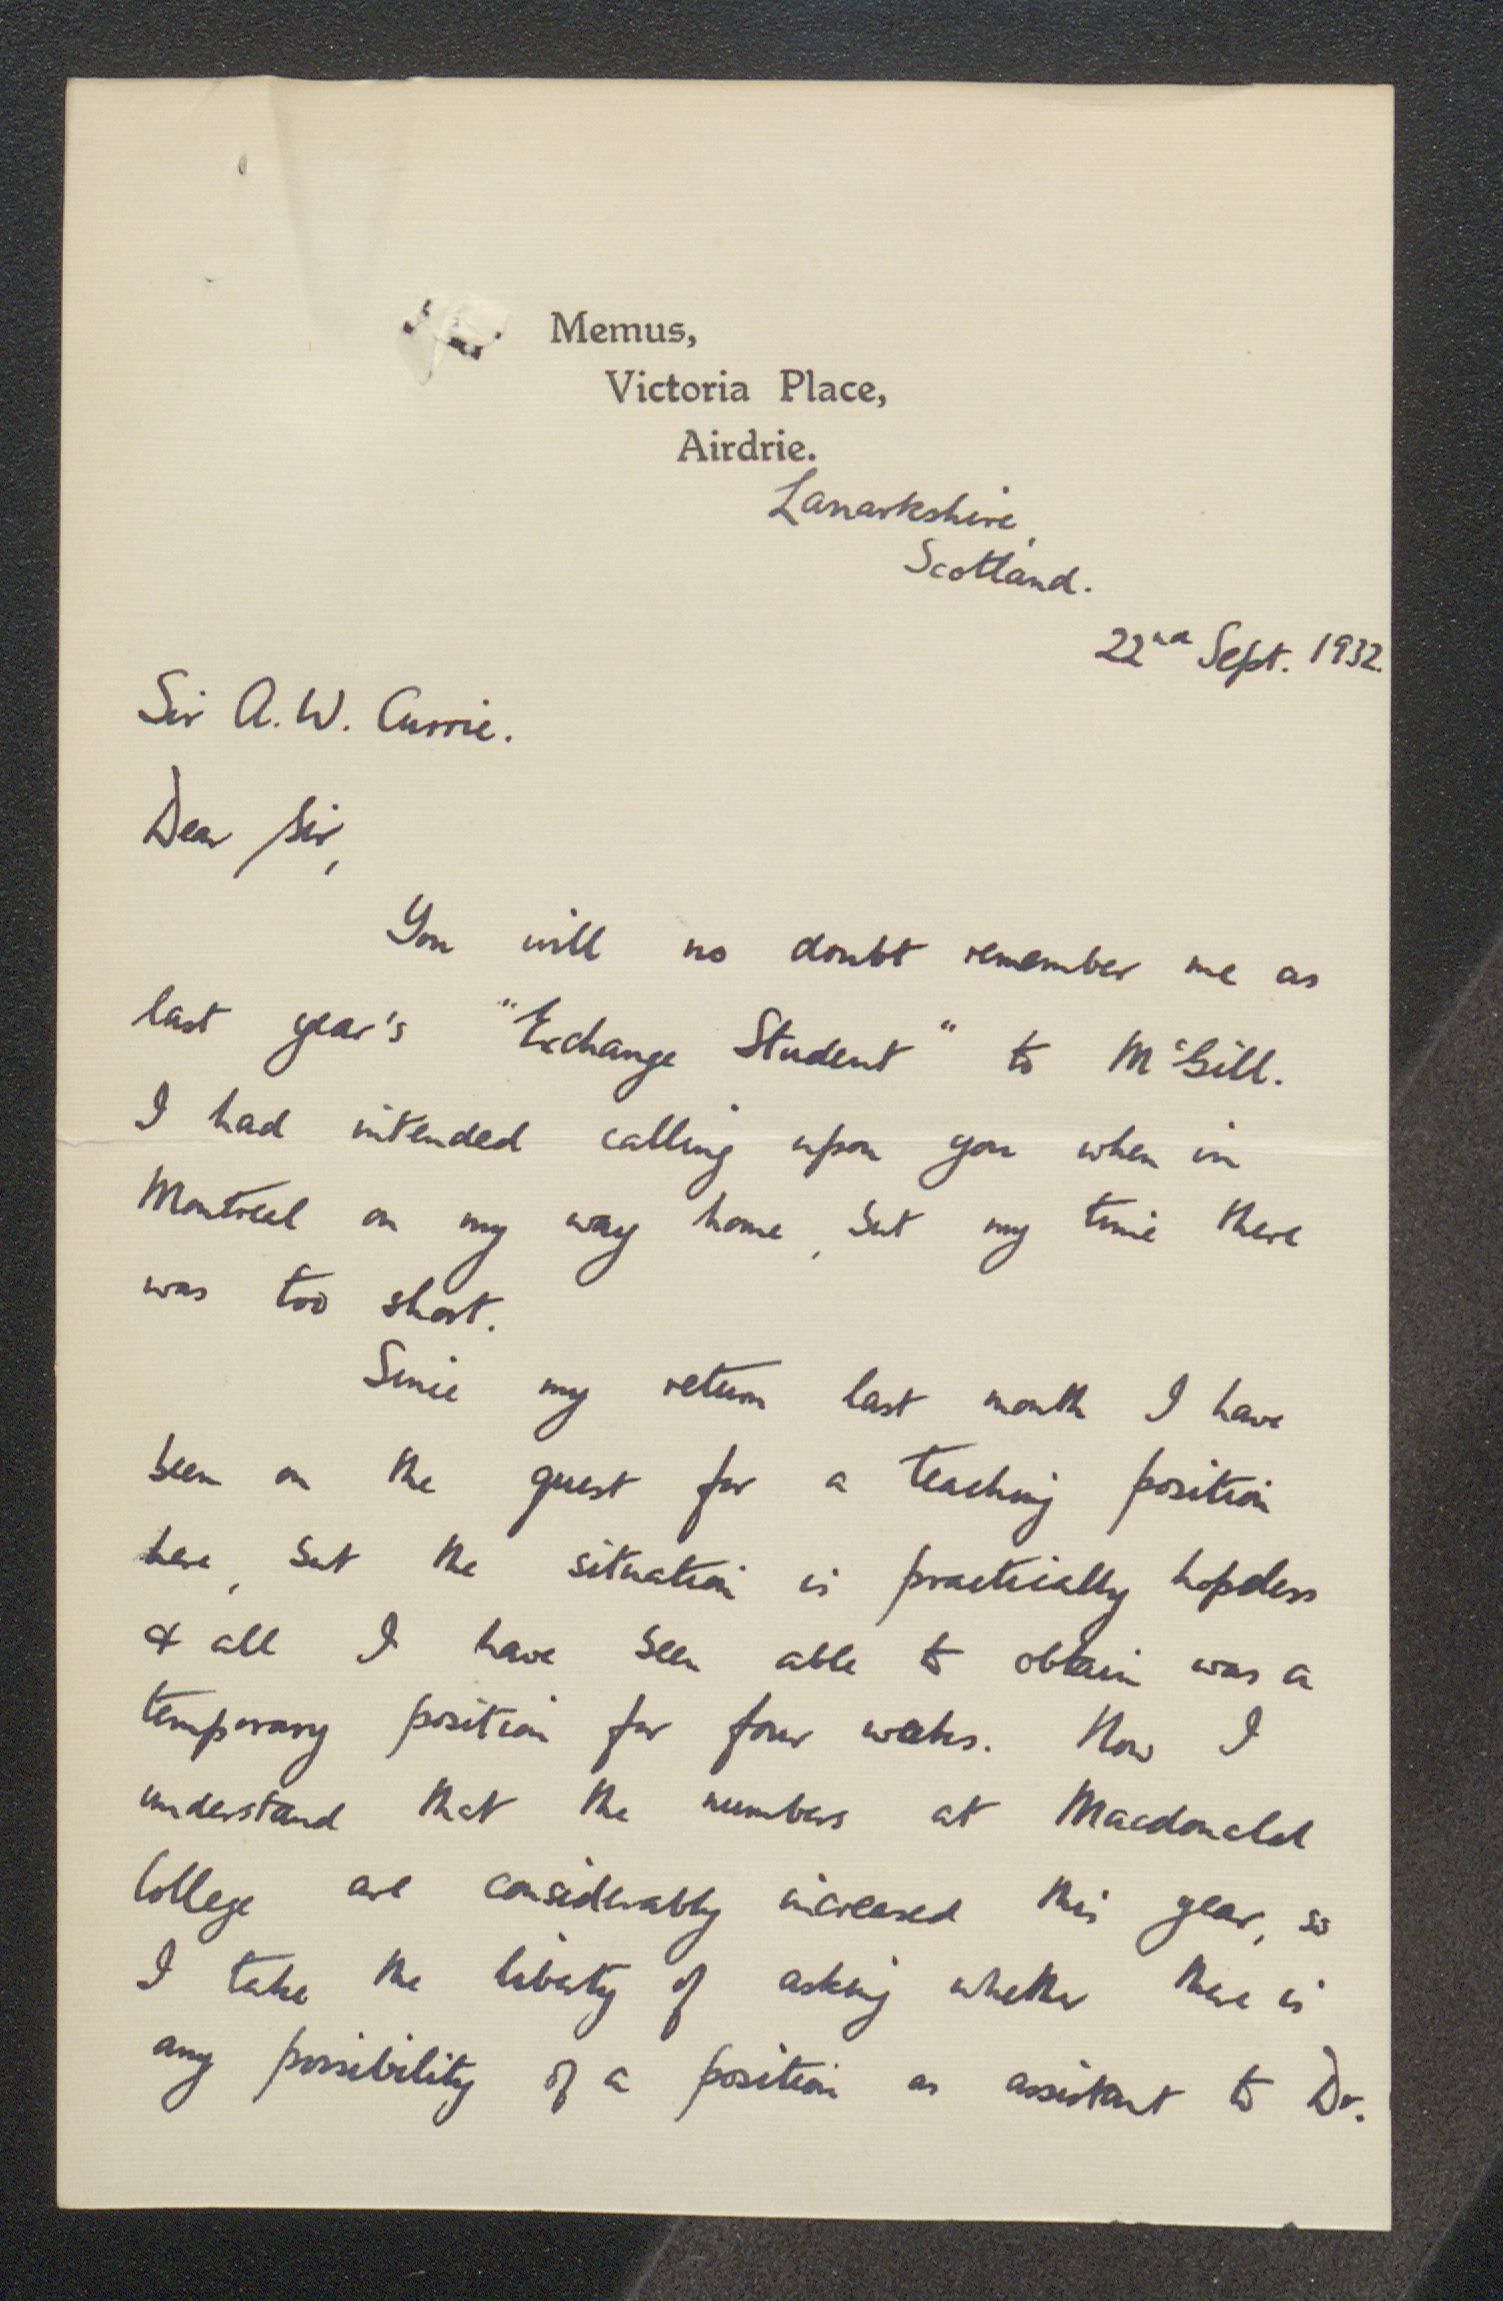 Memus,
Victoria Place,
Airdrie.
Lanarkshire,
Scotland.
22nd Sept. 1932.
Sir A. W. Currie.
Dear Sir,
You will no doubt remember me as
last year's "Exchange Student" to McGill.
I had intended calling upon you when in
Montreal on my way home, but my time there
was too short.
Since my return last month I have
been on the quest for a teaching position
here, but the situation is practically hopeless
& all I have been able to obtain was a
temporary position for four weeks. Now I
understand that the numbers at Macdonald
College are considerably increased this year, so
I take the liberty of asking whether there is
any possibility of a position as assistant to Dr.